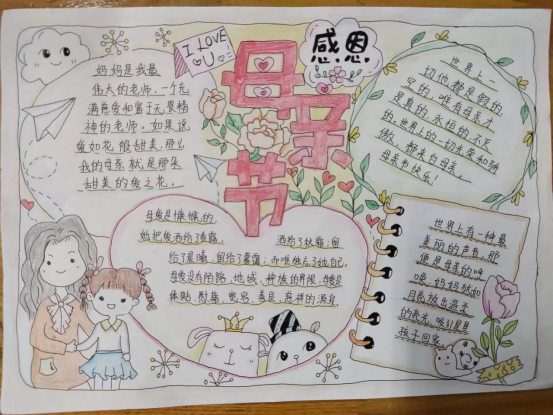 感恩
母亲节
I LOVE
U
妈妈是我最
伟大的老师,一个充
满慈爱和富于无畏精
神的老师。如果说
爱如花般甜美,那么
我的母亲就是那朵
甜美的爱之花。
世界上一
切其他都是假的,
空的,唯有母亲才
是真的,永恒的,不灭
的。世界上的一切光荣和骄
傲,都来自母亲。
母亲节快乐!
母爱是慷慨的
她把爱洒给了春露,洒给了秋霜;留
给了晨曦,留给了暮霭,
母爱没有陌路,地域,种族的界限,母爱是
体贴,慰藉,宽容,善良,慈祥的源泉
世界上有一种最
美丽的声音,那
便是母亲的呼
唤,妈妈就如
月亮放出温柔
的亮光,吸引星星
孩子回家。